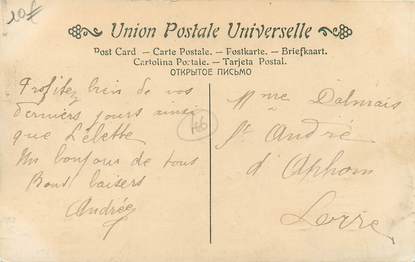 20f
Union Postale Universelle
Post Card. – Carte Postale. – Postkarte. – Briefkaart.
Cartolina Postale. – Tarjeta Postal.
ОТКРЫТОЕ ПИСЬМО
Profitez bien de vos
derniers jours ainsi
que Lélette
Un bonjour de tous
Bons baisers
Andrée
Mme Dalmais
à
St André
d'Apchon
Loire